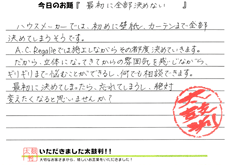 今日のお題『 最初に全部決めない 』
ハウスメーカーでは、初めに壁紙、カーテンまで全部
決めてしまうそうです。
A.C.Regalleでは施工しながらその都度決めていきます。
だから、立体になってきてからの雰囲気を感じながら、
ギリギリまで悩むことができるし、何でも相談できます。
最初に決めてしまったら、忘れてしまうし、絶対
変えたくなると思いませんか？
いただきました太鼓判!!